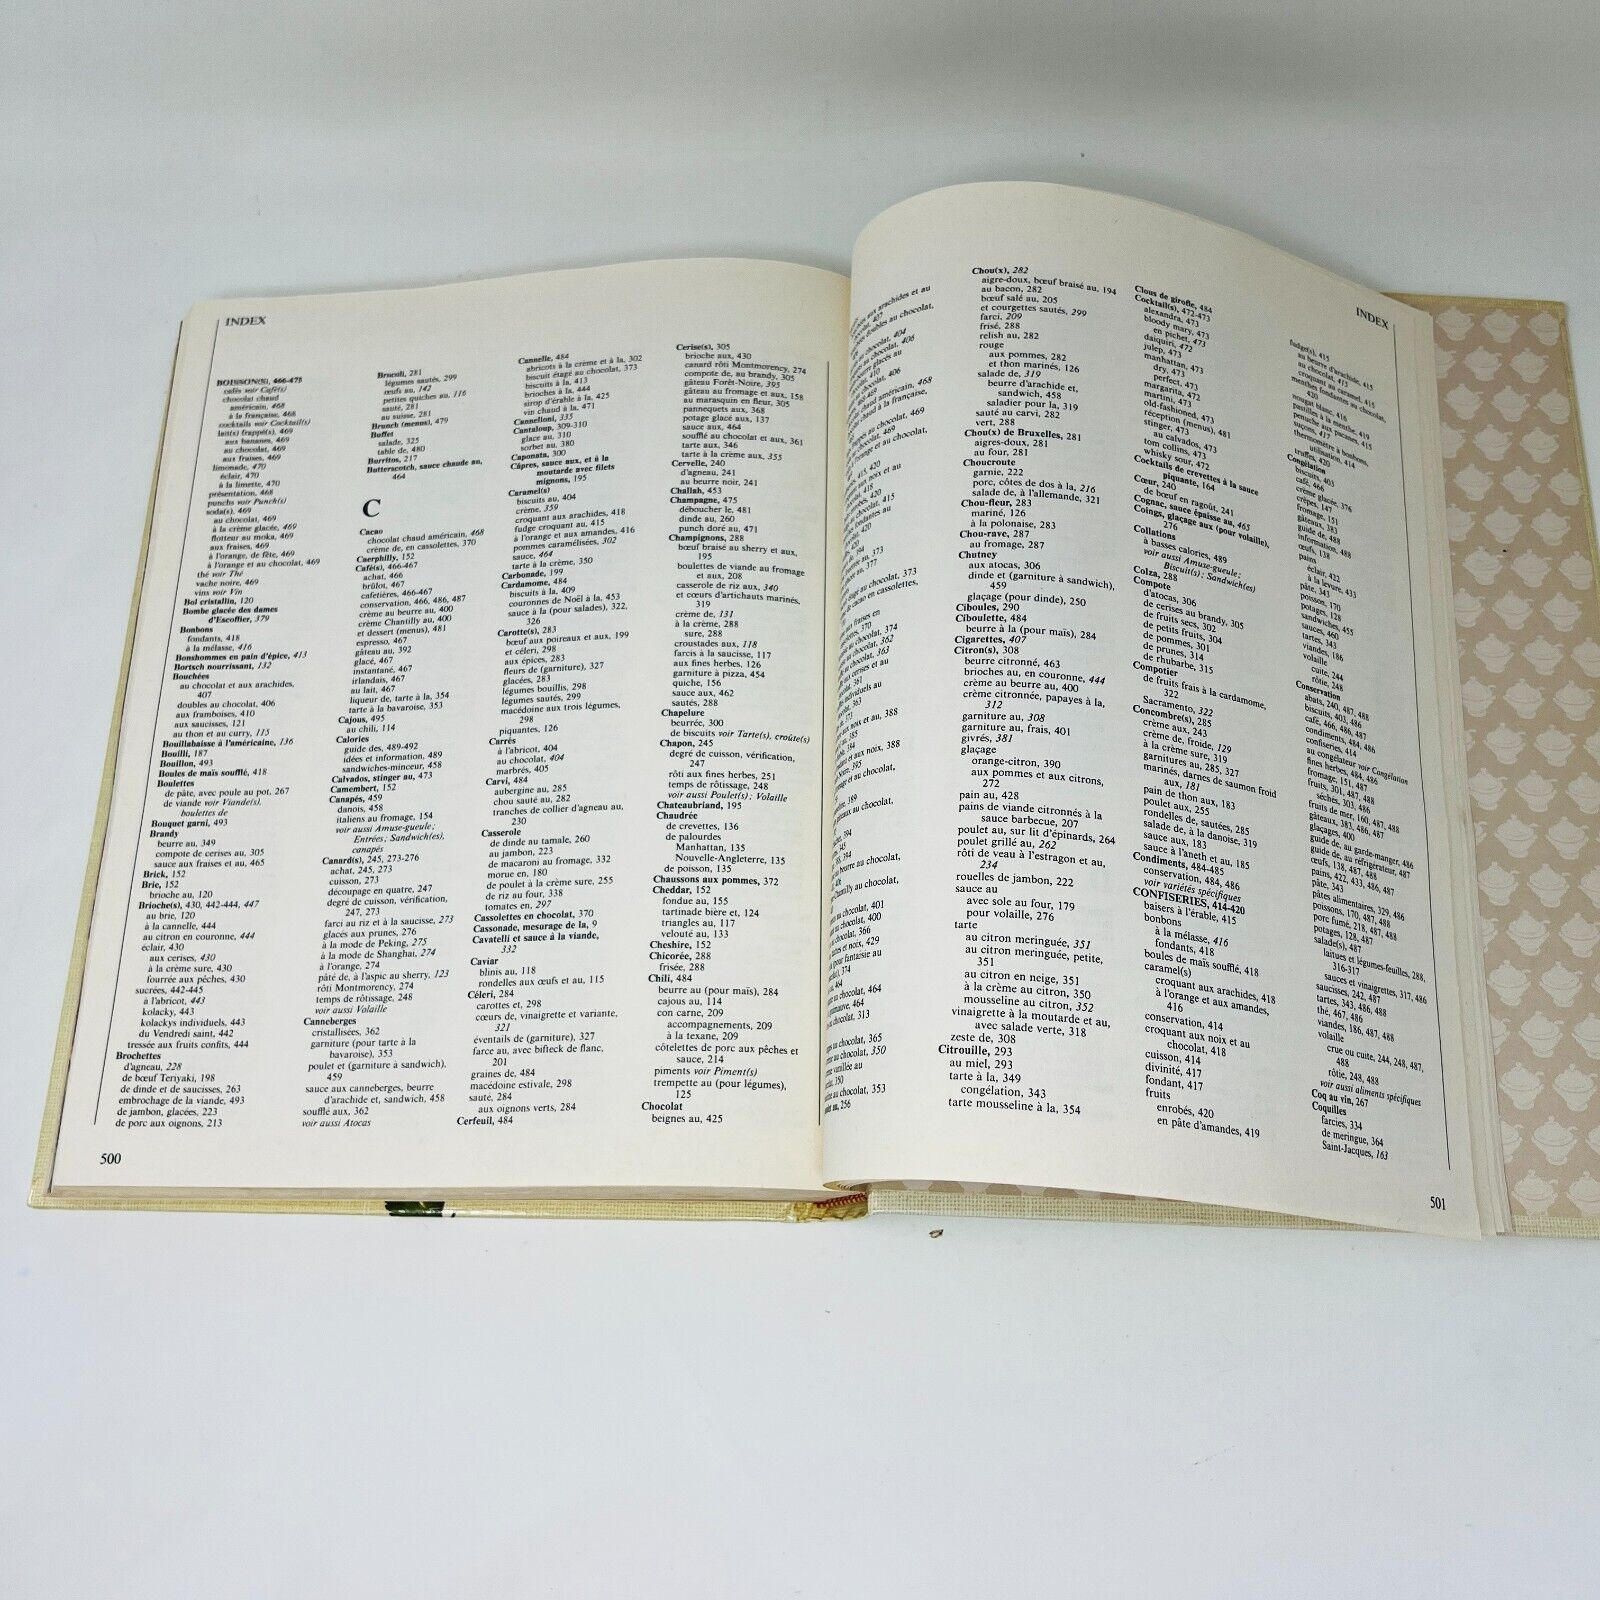 INDEX
BOISSON(S), 466-475
cafés voir Café(s)
chocolat chaud
américain, 468
à la française, 468
cocktails voir Cocktail(s)
lait(s) frappé(s), 469
aux bananes, 469
au chocolat, 469
aux fraises, 469
limonade, 470
éclair, 470
à la limette, 470
présentation, 468
punchs voir Punch(s)
soda(s), 469
au chocolat, 469
à la crème glacée, 469
flotteur au moka, 469
aux fraises, 469
à l'orange, de fête, 469
à l'orange et au chocolat, 469
thé voir Thé
vache noire, 469
vins voir Vin
Bol cristallin, 120
Bombe glacée des dames
d'Escoffier, 379
Bonbons
fondants, 418
à la mélasse, 416
Bonshommes en pain d'épice, 413
Bortsch nourrissant, 132
Bouchées
au chocolat et aux arachides,
407
doubles au chocolat, 406
aux framboises, 410
aux saucisses, 121
au thon et au curry, 115
Bouillabaisse à l'américaine, 136
Bouilli, 187
Bouillon, 493
Boules de maïs soufflé, 418
Boulettes
de pâte, avec poule au pot, 267
de viande voir Viande(s),
boulettes de
Bouquet garni, 493
Brandy
beurre au, 349
compote de cerises au, 305
sauce aux fraises et au, 465
Brick, 152
Brie, 152
brioche au, 120
Brioche(s), 430, 442-444, 447
au brie, 120
à la cannelle, 444
au citron en couronne, 444
éclair, 430
aux cerises, 430
à la crème sure, 430
fourrée aux pêches, 430
sucrées, 442-445
à l'abricot, 443
kolacky, 443
kolackys individuels, 443
du Vendredi saint, 442
tressée aux fruits confits, 444
Brochettes
d'agneau, 228
de bœuf Teriyaki, 198
de dinde et de saucisses, 263
embrochage de la viande, 493
de jambon, glacées, 223
de porc aux oignons, 213
Brocoli, 281
légumes sautés, 299
œufs au, 142
petites quiches au, 116
sauté, 281
au suisse, 281
Brunch (menus), 479
Buffet
salade, 325
table de, 480
Burritos, 217
Butterscotch, sauce chaude au,
464
C
Cacao
chocolat chaud américain, 468
crème de, en cassolettes, 370
Caerphilly, 152
Café(s), 466-467
achat, 466
brûlot, 467
cafetières, 466-467
conservation, 466, 486, 487
crème au beurre au, 400
crème Chantilly au, 400
et dessert (menus), 481
espresso, 467
gâteau au, 392
glacé, 467
instantané, 467
irlandais, 467
au lait, 467
liqueur de, tarte à la, 354
tarte à la bavaroise, 353
Cajous, 495
au chili, 114
Calories
guide des, 489-492
idées et information, 489
sandwiches-minceur, 458
Calvados, stinger au, 473
Camembert, 152
Canapés, 459
danois, 458
italiens au fromage, 154
voir aussi Amuse-gueule;
Entrées; Sandwich(es),
canapés
Canard(s), 245, 273-276
achat, 245, 273
cuisson, 273
découpage en quatre, 247
degré de cuisson, vérification,
247, 273
farci au riz et à la saucisse, 273
glacés aux prunes, 276
à la mode de Peking, 275
à la mode de Shanghai, 274
à l'orange, 274
pâté de, à l'aspic au sherry, 123
rôti Montmorency, 274
temps de rôtissage, 248
voir aussi Volaille
Canneberges
cristallisées, 362
garniture (pour tarte à la
bavaroise), 353
poulet et (garniture à sandwich),
459
sauce aux canneberges, beurre
d'arachide et, sandwich, 458
soufflé aux, 362
voir aussi Atocas
Cannelle, 484
abricots à la crème et à la, 302
biscuit étagé au chocolat, 373
biscuits à la, 413
brioches à la, 444
sirop d'érable à la, 425
vin chaud à la, 471
Cannelloni, 335
Cantaloup, 309-310
glace au, 310
sorbet au, 380
Caponata, 300
Câpres, sauce aux, et à la
moutarde avec filets
mignons, 195
Caramel(s)
biscuits au, 404
crème, 359
croquant aux arachides, 418
fudge croquant au, 415
à l'orange et aux amandes, 416
pommes caramélisées, 302
sauce, 464
tarte à la crème, 350
Carbonade, 199
Cardamome, 484
biscuits à la, 409
couronnes de Noël à la, 453
sauce à la (pour salades), 322,
326
Carotte(s), 283
bœuf aux poireaux et aux, 199
et céleri, 298
aux épices, 283
fleurs de (garniture), 327
glacées, 283
légumes bouillis, 298
légumes sautés, 299
macédoine aux trois légumes,
298
piquantes, 126
Carrés
à l'abricot, 404
au chocolat, 404
marbrés, 405
Carvi, 484
aubergine au, 285
chou sauté au, 282
tranches de collier d'agneau au,
230
Casserole
de dinde au tamale, 260
au jambon, 223
de macaroni au fromage, 332
morue en, 180
de poulet à la crème sure, 255
de riz au four, 338
tomates en, 297
Cassolettes en chocolat, 370
Cassonade, mesurage de la, 9
Cavatelli et sauce à la viande,
332
Caviar
blinis au, 118
rondelles aux œufs et au, 115
Céleri, 284
carottes et, 298
cœurs de, vinaigrette et variante,
321
éventails de (garniture), 327
farce au, avec bifteck de flanc,
201
graines de, 484
macédoine estivale, 298
sauté, 284
aux oignons verts, 284
Cerfeuil, 484
Cerise(s), 305
brioche aux, 430
canard rôti Montmorency, 274
compote de, au brandy, 305
gâteau Forêt-Noire, 395
gâteau au fromage et aux, 158
au marasquin en fleur, 305
pannequets aux, 368
potage glacé aux, 137
sauce aux, 464
soufflé au chocolat et aux, 361
tarte aux, 346
tarte à la crème aux, 355
Cervelle, 240
d'agneau, 241
au beurre noir, 241
Challah, 453
Champagne, 475
déboucher le, 481
dinde au, 260
punch doré au, 471
Champignons, 288
bœuf braisé au sherry et aux,
195
boulettes de viande au fromage
et aux, 208
casserole de riz aux, 340
et cœurs d'artichauts marinés,
319
crème de, 131
à la crème, 288
sure, 288
croustades aux, 118
farcis à la saucisse, 117
aux fines herbes, 126
garniture à pizza, 454
quiche, 156
sauce aux, 462
sautés, 288
Chapelure
beurrée, 300
de biscuits voir Tarte(s), croûte(s)
Chapon, 245
degré de cuisson, vérification,
247
rôti aux fines herbes, 251
temps de rôtissage, 248
voir aussi Poulet(s); Volaille
Chateaubriand, 195
Chaudrée
de crevettes, 136
de palourdes
Manhattan, 135
Nouvelle-Angleterre, 135
de poisson, 135
Chaussons aux pommes, 372
Cheddar, 152
fondue au, 155
tartinade bière et, 124
tartelettes au, 117
velouté au, 133
Cheshire, 152
Chicorée, 288
frisée, 288
Chili, 484
beurre au (pour maïs), 284
cajous au, 114
con carne, 209
accompagnements, 209
à la texane, 209
côtelettes de porc aux pêches et
sauce, 214
piments voir Piment(s)
trempette au (pour légumes),
125
Chocolat
beignes au, 425
500
INDEX
Chou(x), 282
aigre-doux, bœuf braisé au, 194
au bacon, 282
bœuf salé au, 205
et courgettes sautés, 299
farci, 209
frisé, 288
relish au, 282
rouge
aux pommes, 282
et thon marinés, 126
salade de, 319
beurre d'arachide et,
sandwich, 458
saladier pour la, 319
sauté au carvi, 282
vert, 288
Chou(x) de Bruxelles, 281
aigres-doux, 281
au four, 281
Choucroute
garnie, 222
porc, côtes de dos à la, 216
salade de, à l'allemande, 321
Chou-fleur, 283
mariné, 126
à la polonaise, 283
Chou-rave, 287
au fromage, 287
Chutney
aux atocas, 306
dinde et (garniture à sandwich),
459
glaçage (pour dinde), 250
Ciboules, 290
Ciboulette, 484
beurre à la (pour maïs), 284
Cigarettes, 407
Citron(s), 308
beurre citronné, 463
brioches au, en couronne, 444
crème au beurre au, 400
crème citronnée, papayes à la,
312
garniture au, 308
garniture au, frais, 401
givrés, 381
glaçage
orange-citron, 390
aux pommes et aux citrons,
272
pain au, 428
pains de viande citronnés à la
sauce barbecue, 207
poulet au, sur lit d'épinards, 264
poulet grillé au, 262
rôti de veau à l'estragon et au,
234
rouelles de jambon, 222
sauce au
avec sole au four, 179
pour volaille, 276
tarte
au citron meringuée, 351
au citron meringuée, petite,
351
au citron en neige, 351
à la crème au citron, 350
mousseline au citron, 352
vinaigrette à la moutarde et au,
avec salade verte, 318
zeste de, 308
Citrouille, 293
au miel, 293
tarte à la, 349
congélation, 343
tarte mousseline à la, 354
Clous de girofle, 484
Cocktail(s), 472-473
alexandra, 473
bloody mary, 473
en pichet, 473
daiquiri, 472
julep, 473
manhattan, 473
dry, 473
perfect, 473
margarita, 472
martini, 473
old-fashioned, 473
réception (menus), 481
stinger, 473
au calvados, 473
tom collins, 473
whisky sour, 472
Cocktails de crevettes à la sauce
piquante, 164
Cœur, 240
de bœuf en ragoût, 241
Cognac, sauce épaisse au, 465
Coings, glaçage aux (pour volaille),
276
Collations
à basses calories, 489
voir aussi Amuse-gueule;
Biscuit(s); Sandwich(es)
Colza, 288
Compote
d'atocas, 306
de cerises au brandy, 305
de fruits secs, 302
de petits fruits, 304
de pommes, 301
de prunes, 314
de rhubarbe, 315
Compotier
de fruits frais à la cardamome,
322
Sacramento, 322
Concombre(s), 285
crème aux, 243
crème de, froide, 129
à la crème sure, 319
garnitures au, 285, 327
marinés, darnes de saumon froid
aux, 181
pain de thon aux, 183
poulet aux, 255
rondelles de, sautées, 285
salade de, à la danoise, 319
sauce aux, 183
sauce à l'aneth et au, 185
Condiments, 484-485
conservation, 484, 486
voir variétés spécifiques
CONFISERIES, 414-420
baisers à l'érable, 415
bonbons
à la mélasse, 416
fondants, 418
boules de maïs soufflé, 418
caramel(s)
croquant aux arachides, 418
à l'orange et aux amandes,
416
conservation, 414
croquant aux noix et au
chocolat, 418
cuisson, 414
divinité, 417
fondant, 417
fruits
enrobés, 420
en pâte d'amandes, 419
fudge(s), 415
au beurre d'arachide, 415
au chocolat, 415
croquant au caramel, 415
menthes fondantes au chocolat,
420
nougat blanc, 416
pastilles à la menthe, 419
penuche aux pacanes, 415
suçons, 417
thermomètre à bonbons,
utilisation, 414
truffes, 420
Congélation
biscuits, 403
café, 466
crème glacée, 376
crêpes, 147
fromage, 151
gâteaux, 383
guide de, 488
information, 488
œufs, 138
pains
éclair, 422
à la levure, 433
pâte, 343
poisson, 170
potages, 128
sandwiches, 455
sauces, 460
tartes, 343
viandes, 186
volaille
cuite, 244
rôtie, 248
Conservation
abats, 240, 487, 488
biscuits, 403, 486
café, 466, 486, 487
condiments, 484, 486
confiseries, 414
au congélateur voir Congélation
fines herbes, 484, 486
fromage, 151, 487
fruits, 301, 487, 488
séchés, 303, 486
fruits de mer, 160, 487, 488
gâteaux, 383, 486, 487
glaçages, 400
guide de, au garde-manger, 486
guide de, au réfrigérateur, 487
œufs, 138, 487
pains, 422, 433, 486, 487
pâte, 343
pâtes alimentaires, 329, 486
poissons, 170, 487, 488
porc fumé, 218, 487, 488
potages, 128, 487
salade(s), 487
laitues et légumes-feuilles, 288,
316-317
sauces et vinaigrettes, 317, 486
saucisses, 242, 487
tartes, 343, 486, 487
thé, 467, 486
viandes, 186, 487, 488
volaille
crue ou cuite, 244, 248, 487,
488
rôtie, 248, 488
voir aussi aliments spécifiques
Coq au vin, 267
Coquilles
farcies, 334
de meringue, 364
Saint-Jacques, 163
501